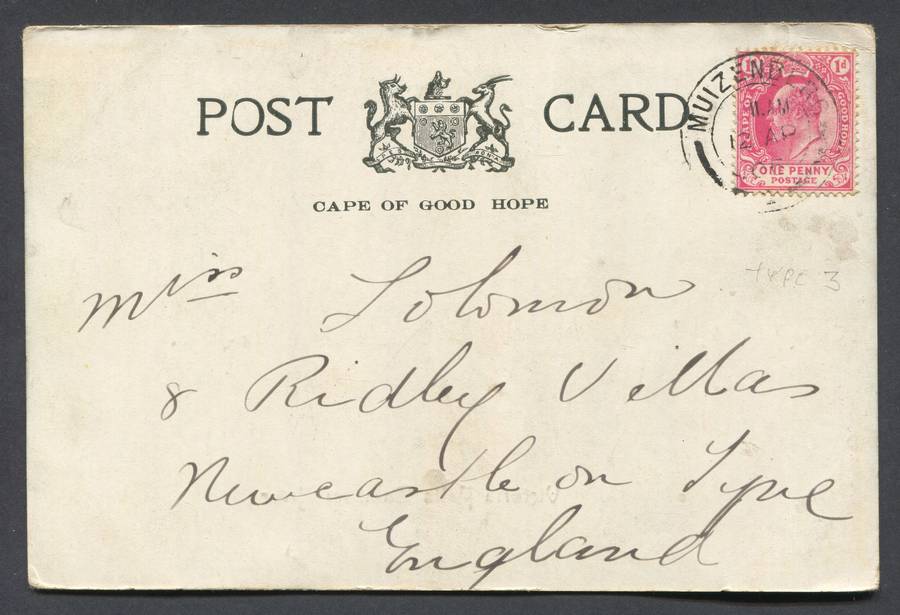 POST CARD
CAPE OF GOOD HOPE
MUIZENB
11 AM
AP
1d 1d
CAPE OF GOOD HOPE
ONE PENNY
POSTAGE
type 3
Miss Solomon
8 Ridley Villas
Newcastle on Tyne
England